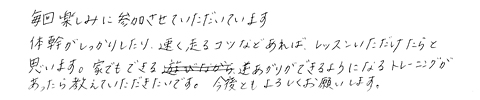 毎回楽しみに参加させていただいています
体幹がしっかりしたり、速く走るコツなどあれば、レッスンいただけたらと
思います。家でもできる 逆あがりができるようになるトレーニングが
あったら教えていただきたいです。 今後ともよろしくお願いします。